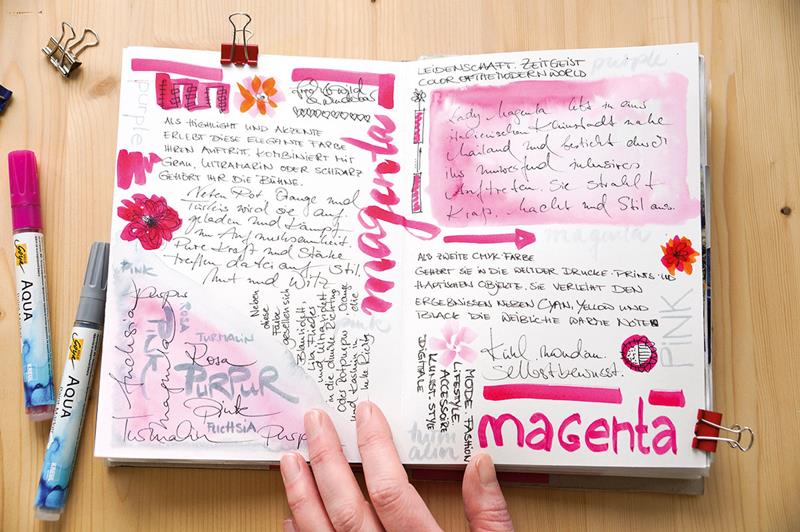 purple
ALS HIGHLIGHT UND AKZENTE
ERLEBT DIESE ELEGANTE FARBE
IHREN AUFTRITT. KOMBINIERT MIT
GRAU, ULTRAMARIN ODER SCHWARZ
GEHÖRT IHR DIE BÜHNE.
Neben Rot, Orange und
Türkis wird sie auf-
geladen und kämpft
um Aufmerksamkeit.
Pure Kraft und Stärke
treffen dabei auf Stil,
Mut und Witz
magenta
PINK
purpur
ROSA
Fuchsia
PUR
magenta
TURMALIN
Rosa
PURPUR
Pink
FUCHSIA
Turmalin
Neben
diese
Farbe
gesellen sich
Blauviolett,
lila Flieder
und Ultraviolett
in die dunkle Richtung
Oder Rotpurpur, Orange
und
in die
pink
LEIDENSCHAFT. ZEITGEIST
COLOR OF THE MODERN WORLD
purple
Lady Magenta lebt in einer
italienischen Kleinstadt nahe
Mailand und besticht durch
ihr
Auftreten. Sie strahlt
Kraft, Macht und Stil aus.
magenta
ALS ZWEITE CMYK-FARBE
GEHÖRT SIE IN DIE WELT DER DRUCKE, PRINTS UND
HAPTISCHEN OBJEKTE. SIE VERLEIHT DEN
ERGEBNISSEN NEBEN CYAN, YELLOW UND
BLACK DIE WEIBLICHE WARME NOTE
PINK
Kühl, mondän.
Selbstbewusst.
MODE. FASHION
LIFESTYLE.
ACCESSOIRE
KUNST. STYLE
DIGITALE
turm
alin
magenta
AQUA
AQUA